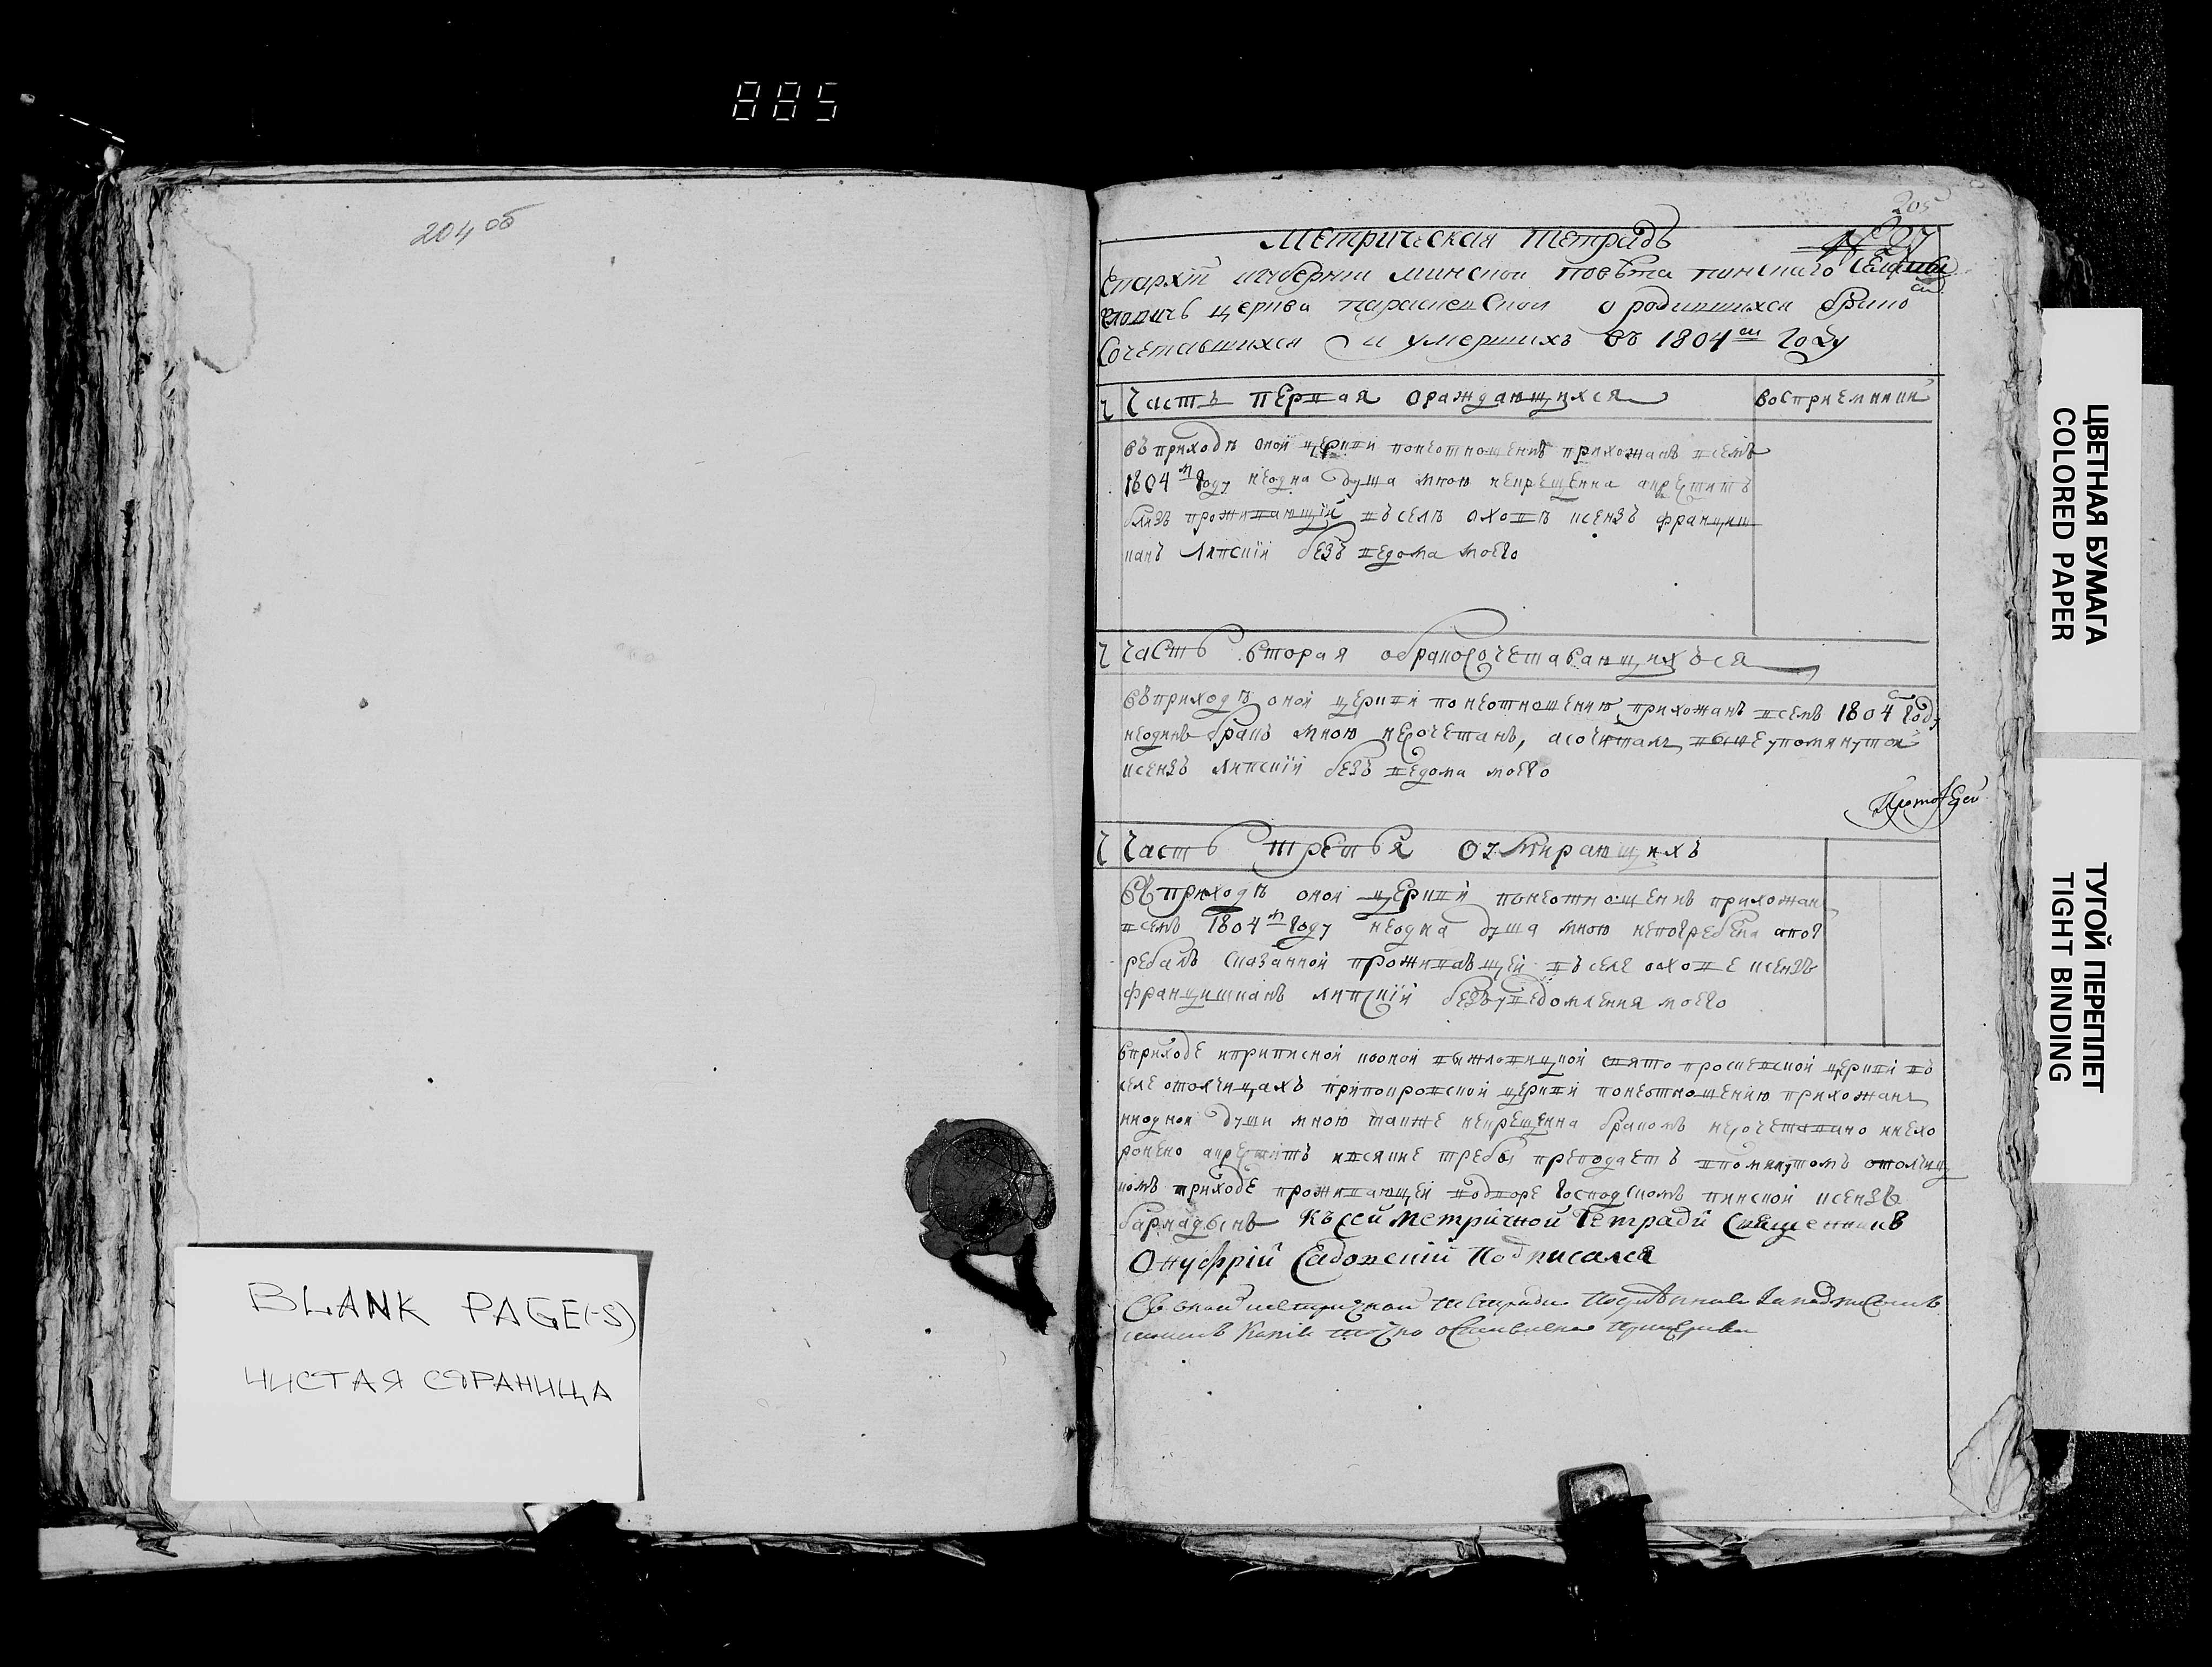 885
204 об
BLANK PAGE(-S)
ЧИСТАЯ СТРАНИЦА
205
Метрическая тетрадь
Епархіи игуберніи минской повѣта пинскаго
церкви параскевской о родившихся брако
сочетавшихся и умершихъ въ 1804м году
Ч Часть первая ораждающихся
восприемники
въ приходѣ оной церкви понеотношенію прихожанъ всемъ
1804м году неодна душа мною некрещенна акреститъ
проживающій въ селѣ оховѣ ксензъ францыш
канъ Липскій безъ ведома моего
Ч Часть вторая обракосочетавающихъся
въ приходѣ оной церкви понеотношенію прихожанъ всемъ 1804 году
неодинъ бракъ мною несочетанъ, асочеталъ вышеупомянутой
ксензъ липскій безъ ведома моего
Ч Часть третья оумирающихъ
въ приходѣ оной церкви понеотношенію прихожан
всемъ 1804м году неодна душа мною непогребена апог
ребалъ сказанной проживающей въ селе охове ксензъ
францишканъ липскій безъ уведомления моего
вприходе иприписной коной церкви въ
селе отолчицахъ припокровской церкви понеотношенію прихожанъ
ниодной души мною также некрещенна бракомъ несочетавано инехо
ронено акреститъ ивсякие требы преподаетъ впомянутомъ отолчиц
комъ приходе проживающей подворе господскомъ пинской ксензъ
Къ сей метричной тетради священникъ
Онуфрій Садовский подписался
ЦВЕТНАЯ БУМАГА
COLORED PAPER
ТУГОЙ ПЕРЕПЛЕТ
TIGHT BINDING